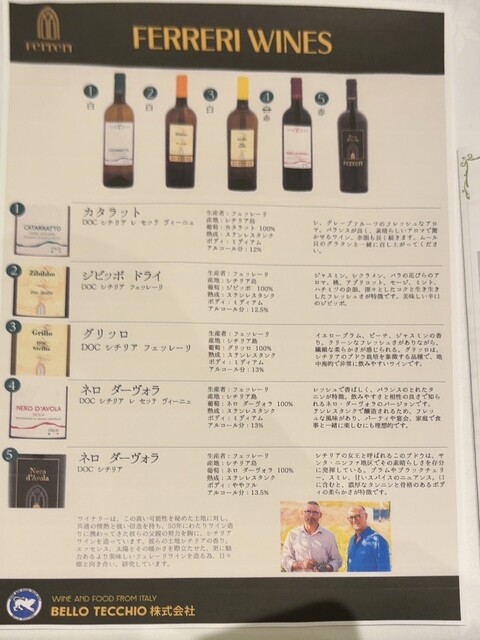 Ferreri
FERRERI WINES
1
白
2
白
3
白
4
赤
5
赤
1
CATARRATTO
カタラット
DOC シチリア レ セッテ ヴィーニェ
生産者：フェッレーリ
産地：シチリア島
葡萄：カタラット 100%
熟成：ステンレスタンク
ボディ：ミディアム
アルコール分：12%
レ、グレープフルーツのフレッシュなアロ
マ、バランスが良く、素晴らしいアロマで驚
かせるワイン、余韻も長く続きます。ムール
貝のグラタンと一緒に召し上がってくださ
い。
2
Zibibbo
ジビッボ ドライ
DOC シチリア フェッレーリ
生産者：フェッレーリ
産地：シチリア島
葡萄：ジビッボ 100%
熟成：ステンレスタンク
ボディ：ミディアム
アルコール分：12.5%
ジャスミン、シクラメン、バラの花びらのア
ロマ、桃、アプリコット、セージ、ミント、
ハチミツの余韻。溌々としたコクと生き生き
したフレッシュさが特徴です。美味しい辛口
のジビッボ。
3
Grillo
グリッロ
DOC シチリア フェッレーリ
生産者：フェッレーリ
産地：シチリア島
葡萄：グリッロ 100%
熟成：ステンレスタンク
ボディ：ミディアム
アルコール分：13%
イエロープラム、ピーチ、ジャスミンの香
り、クリーンなフレッシュさがありながら、
繊細な柔らかさが感じられる。グリッロは、
シチリアのブドウ栽培を象徴する品種で、地
中海的で非常に飲みやすいワインです。
4
NERO D'AVOLA
ネロ ダーヴォラ
DOC シチリア レ セッテ ヴィーニェ
生産者：フェッレーリ
産地：シチリア島
葡萄：ネロ ダーヴォラ 100%
熟成：ステンレスタンク
ボディ：ミディアム
アルコール分：13%
レッシュで香ばしく、バランスのとれたタ
ニンが特徴。飲みやすさと相性の良さで知ら
れるネロ・ダーヴォラのバージョンです。ス
テンレスタンクで醸造されるため、フレッシ
ュな風味があり、パーティや宴会、家庭で食
事と一緒に楽しむにも理想的です。
5
Nero
d'Avola
ネロ ダーヴォラ
DOC シチリア
生産者：フェッレーリ
産地：シチリア島
葡萄：ネロ ダーヴォラ 100%
熟成：ステンレスタンク
ボディ：ややフル
アルコール分：13.5%
シチリアの女王と呼ばれるこのブドウは、サ
ンタ・ニンファ地区でその素晴らしさを存分
に発揮している。プラムやブラックチェリ
ー、スミレ、甘いスパイスのニュアンス。口
に含むと、濃厚なタンニンと骨格のあるボデ
ィの柔らかさが特長です。
ワイナリーは、この高い可能性を秘めた土地に対し、
共通の情熱と強い信念を持ち、50年にわたりワイン造
りに携わってきた彼らの父親の努力を胸に、シチリア
ワインを造っています。彼らの土地シチリアの香り、
エッセンス、太陽とその暖かさを際立たせた、更に魅
力あるより美味しいフェレーリワインを造る為、日々
畑と向き合い、研究しています。
WINE AND FOOD FROM ITALY
BELLO TECCHIO 株式会社